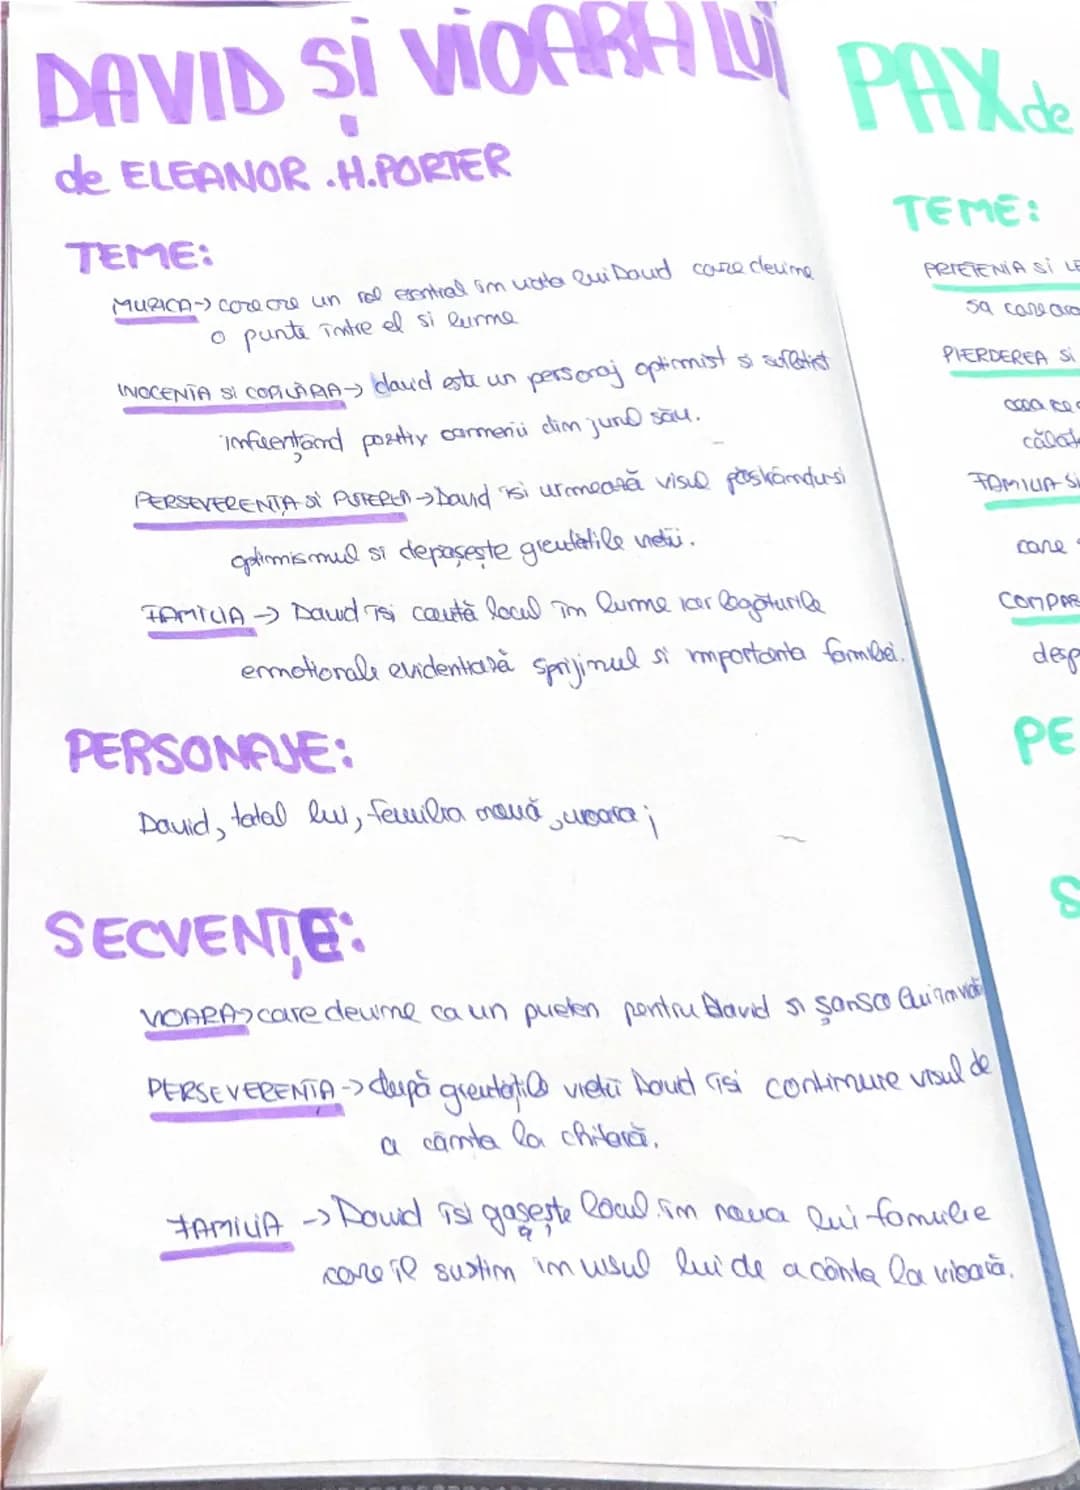 DAVID și VIOARA LUI
de ELEANOR .H.PORTER
TEME:
MUZICA-> care are un rol esential im viata lui David care devime
o punte între el si lume
INOCENTA SI COPILĂRIA-> david este un personaj optimist si sufletist
imfluențând pozitiv oamenii dim jurul său.
PERSEVERENTA SI PUTEREA->David isi urmează visul păstrâmdu-si
optimismul si depașește greutătile vietii.
FAMILIA -> David îsi caută locul îm lume iar legăturile
emotionale evidentiază sprijimul si importanta familiei.
PERSONAJE:
David, tatal lui, familia nouă, vioara;
SECVENȚE:
VIOARA-> care devime ca un prieten pentru David si șansa lui îm viată
PERSEVERENTA-> după greutătile vietii David îsi contimure visul de
a câmta la chitară.
FAMILIA -> David îsi gasește locul im noua lui familie
care îl sustim im visul lui de a cânta la vioară.
PAX de
TEME:
PRIETENIA SI LE
sa care are
PIERDEREA SI
FAMILIA SI
care
COMPAS
desp
PE
S